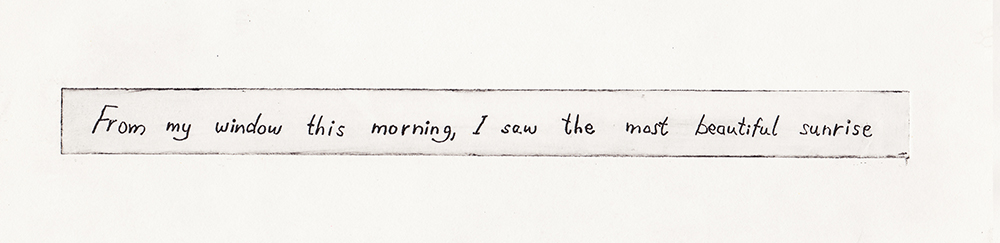 From my window this morning, I saw the most beautiful sunrise